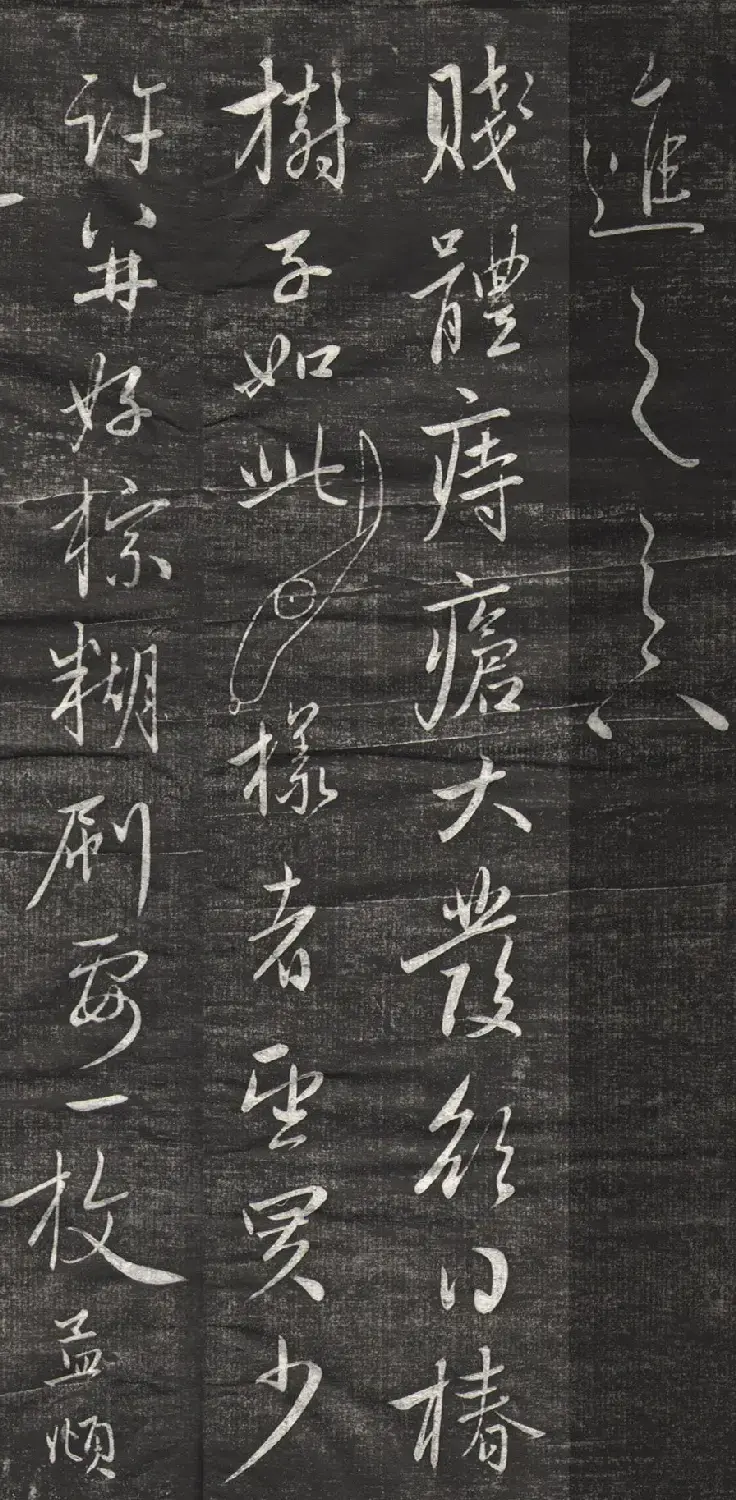 進之
賤體痔瘡大發欲椿
樹子如此樣者望買少
許并好棕糊刷要一枚孟頫